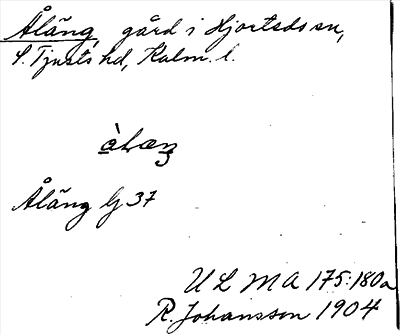 Åläng, gård i Hjorteds sn,
S. Tjusts hd, Kalm. l.
Åläng Gj 37
ULMA 175:180a
R. Johansson 1904